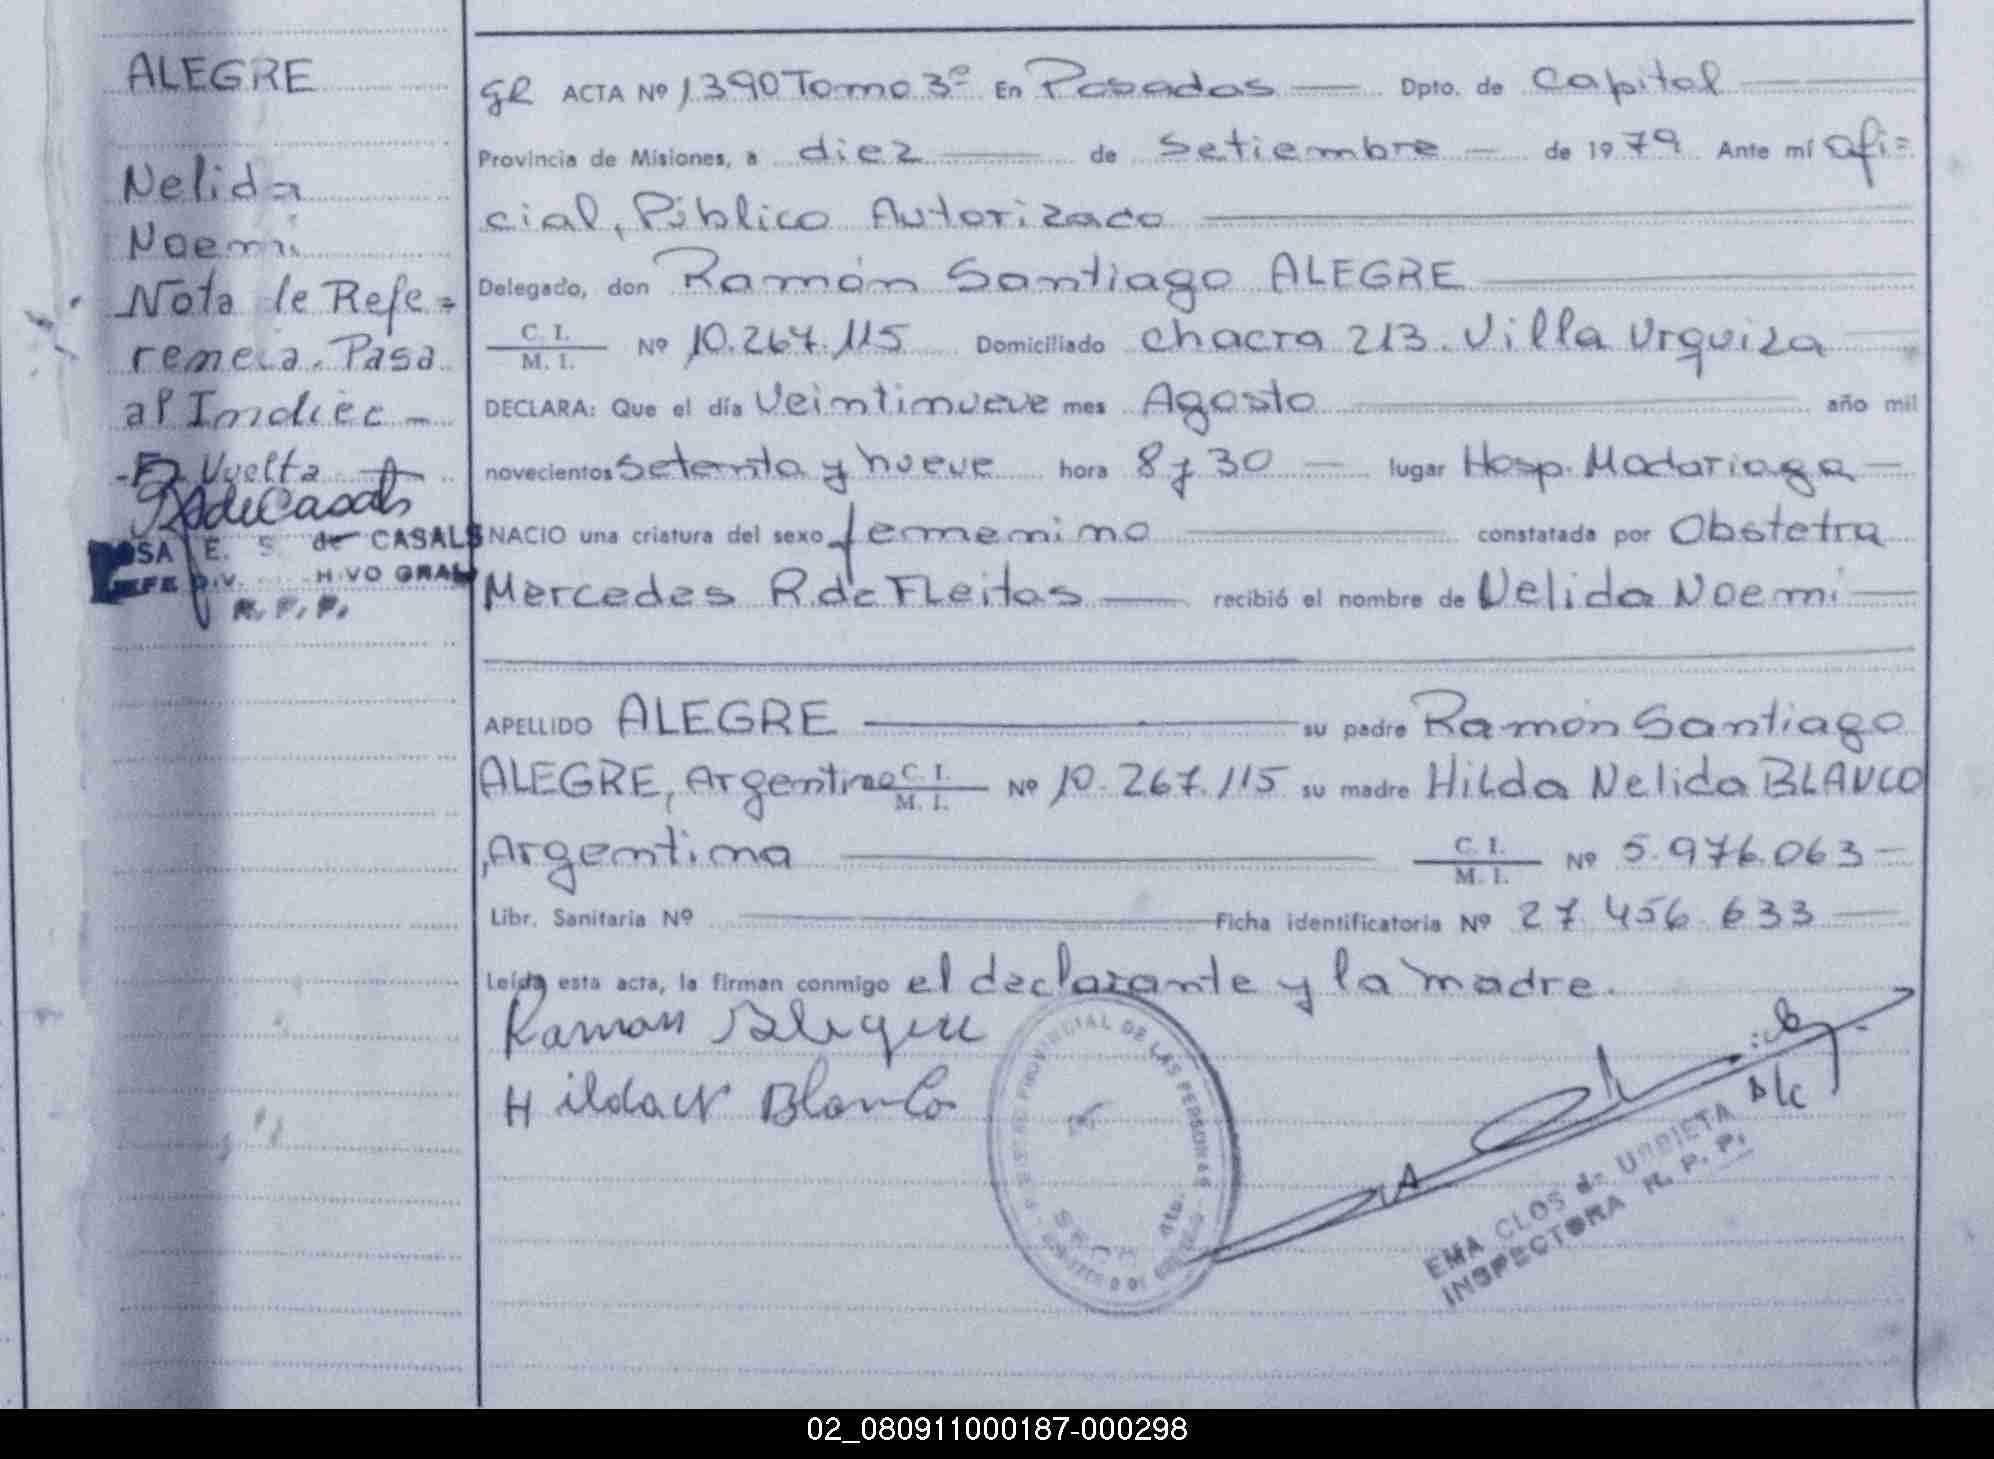 ALEGRE
Nelida
Noemi
Nota de Refe=
rencia. Pasa
al Indice -
Vuelta
de CASALS
R. P. P.
ACTA Nº 1390 Tomo 3º En Posadas Dpto. de Capital
Provincia de Misiones, a diez de Setiembre de 1979 Ante mí Ofi=
cial, Público Autorizado
Delegado, don Ramón Santiago ALEGRE
C. I.
M. I. Nº 10.267.115 Domiciliado Chacra 213. Villa Urquiza
DECLARA: Que el día Veintinueve mes Agosto año mil
novecientos Setenta y nueve hora 8 y 30 lugar Hosp. Madariaga
NACIO una criatura del sexo femenino constatada por Obstetra
Mercedes R. de Fleitas recibió el nombre de Nelida Noemi
APELLIDO ALEGRE su padre Ramón Santiago
ALEGRE, Argentino C. I. M. I. Nº 10.267.115 su madre Hilda Nelida BLANCO
, Argentina C. I. M. I. Nº 5.976.063
Libr. Sanitaria Nº Ficha identificatoria Nº 27.456.633
Leída esta acta, la firman conmigo el declarante y la madre.
Ramon Alegre
Hilda N Blanco
PROVINCIAL DE LAS PERSONAS
EMA CLOS de URRIETA
INSPECTORA R. P. P.
02_080911000187-000298